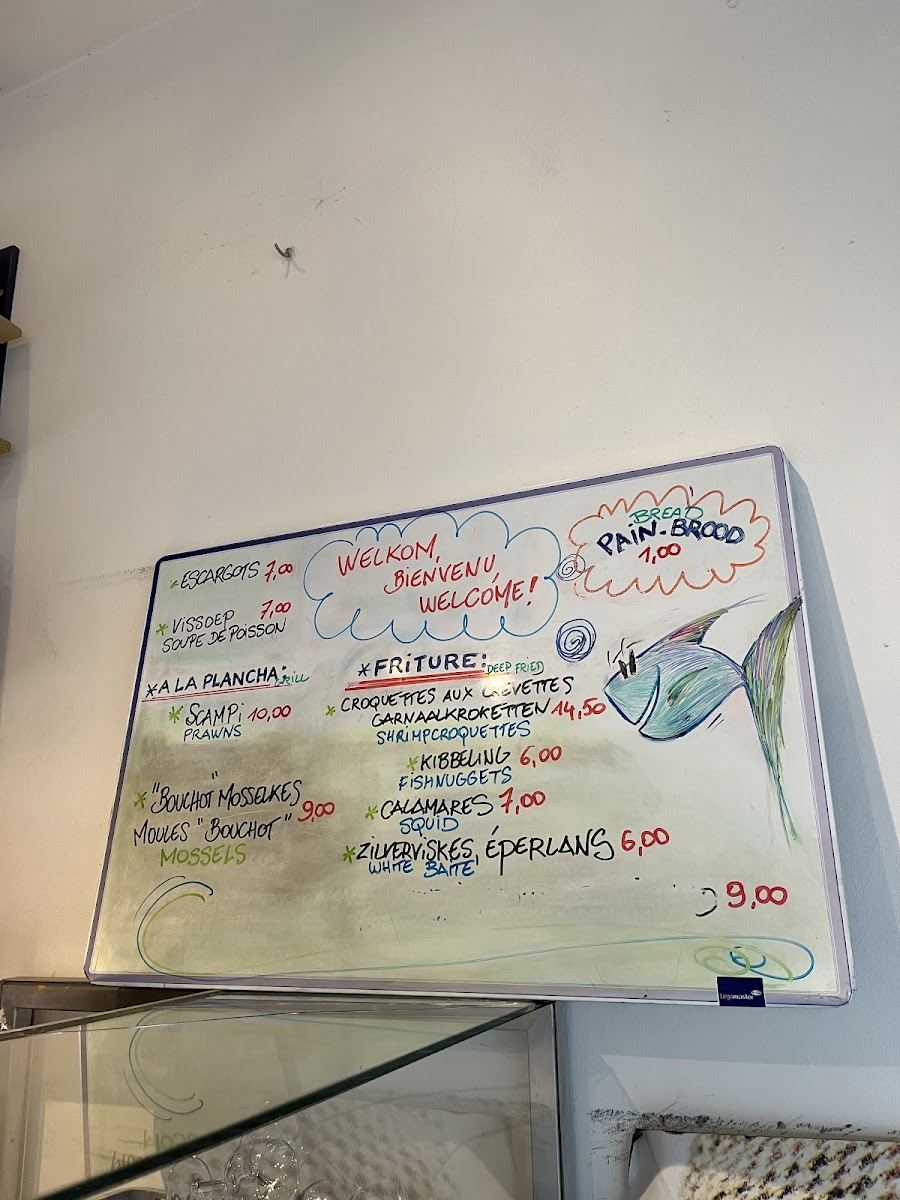 ESCARGOTS 7,00
* VISSOEP 7,00
SOUPE DE POISSON
* A LA PLANCHA: GRILL
* SCAMPI 10,00
PRAWNS
* "BOUCHOT" MOSSELKES
MOULES "BOUCHOT" 9,00
MOSSELS
WELKOM,
BIENVENU,
WELCOME!
BREAD
PAIN-BROOD
1,00
* FRITURE: DEEP FRIED
* CROQUETTES AUX CREVETTES
GARNAALKROKETTEN 14,50
SHRIMPCROQUETTES
* KIBBELING 6,00
FISHNUGGETS
* CALAMARES 7,00
SQUID
* ZILVERVISKES, ÉPERLANS 6,00
WHITE BAITE
9,00
Legamaster